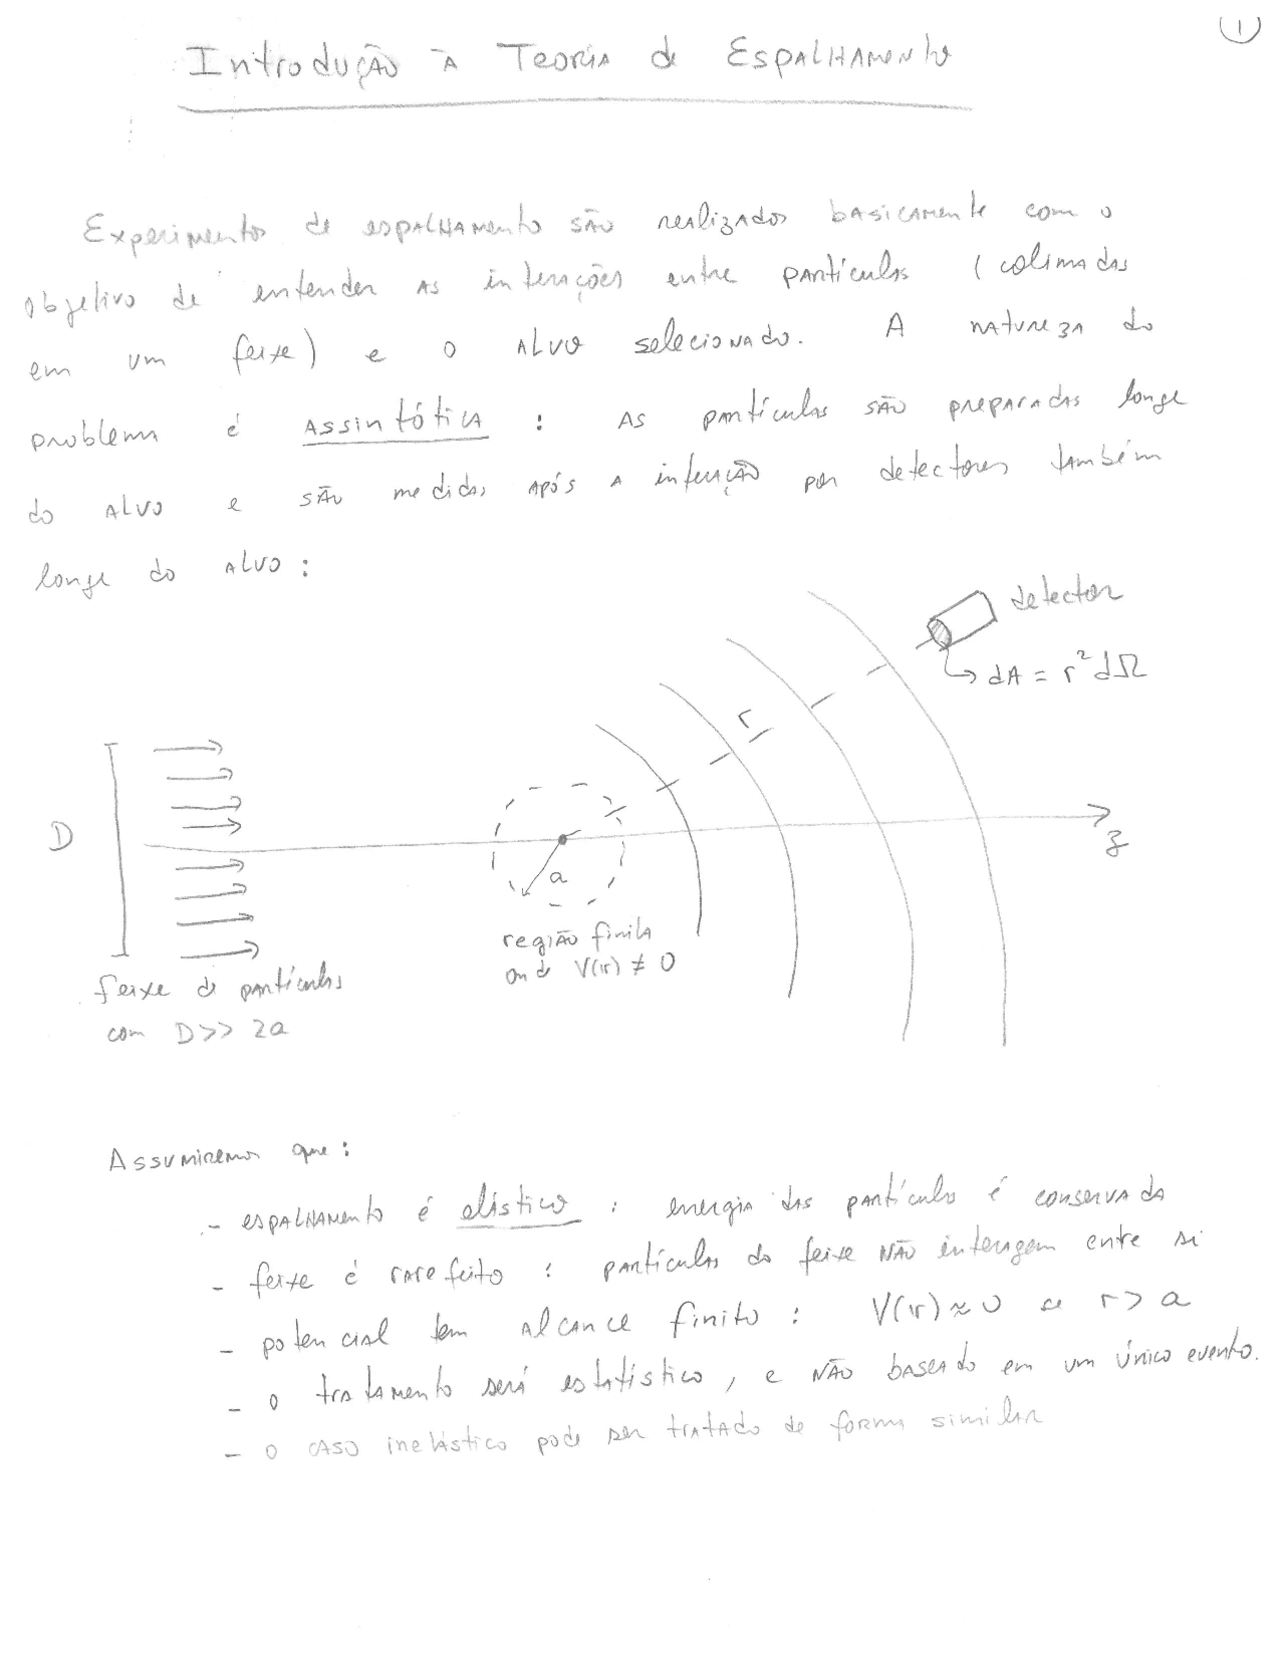 1
Introdução à Teoria de Espalhamento
Experimentos de espalhamento são realizados basicamente com o
objetivo de entender as interações entre partículas (colimadas
em um feixe) e o alvo selecionado. A natureza do
problema é assintótica : as partículas são preparadas longe
do alvo e são medidas após a interação por detectores também
longe do alvo :
detector
dA = r² dΩ
r
D
z
a
região finita
onde V(r) ≠ 0
feixe de partículas
com D >> 2a
Assumiremos que :
- espalhamento é elástico : energia das partículas é conservada
- feixe é rarefeito : partículas do feixe não interagem entre si
- potencial tem alcance finito : V(r) ≈ 0 se r > a
- o tratamento será estatístico, e não baseado em um único evento.
- o caso inelástico pode ser tratado de forma similar